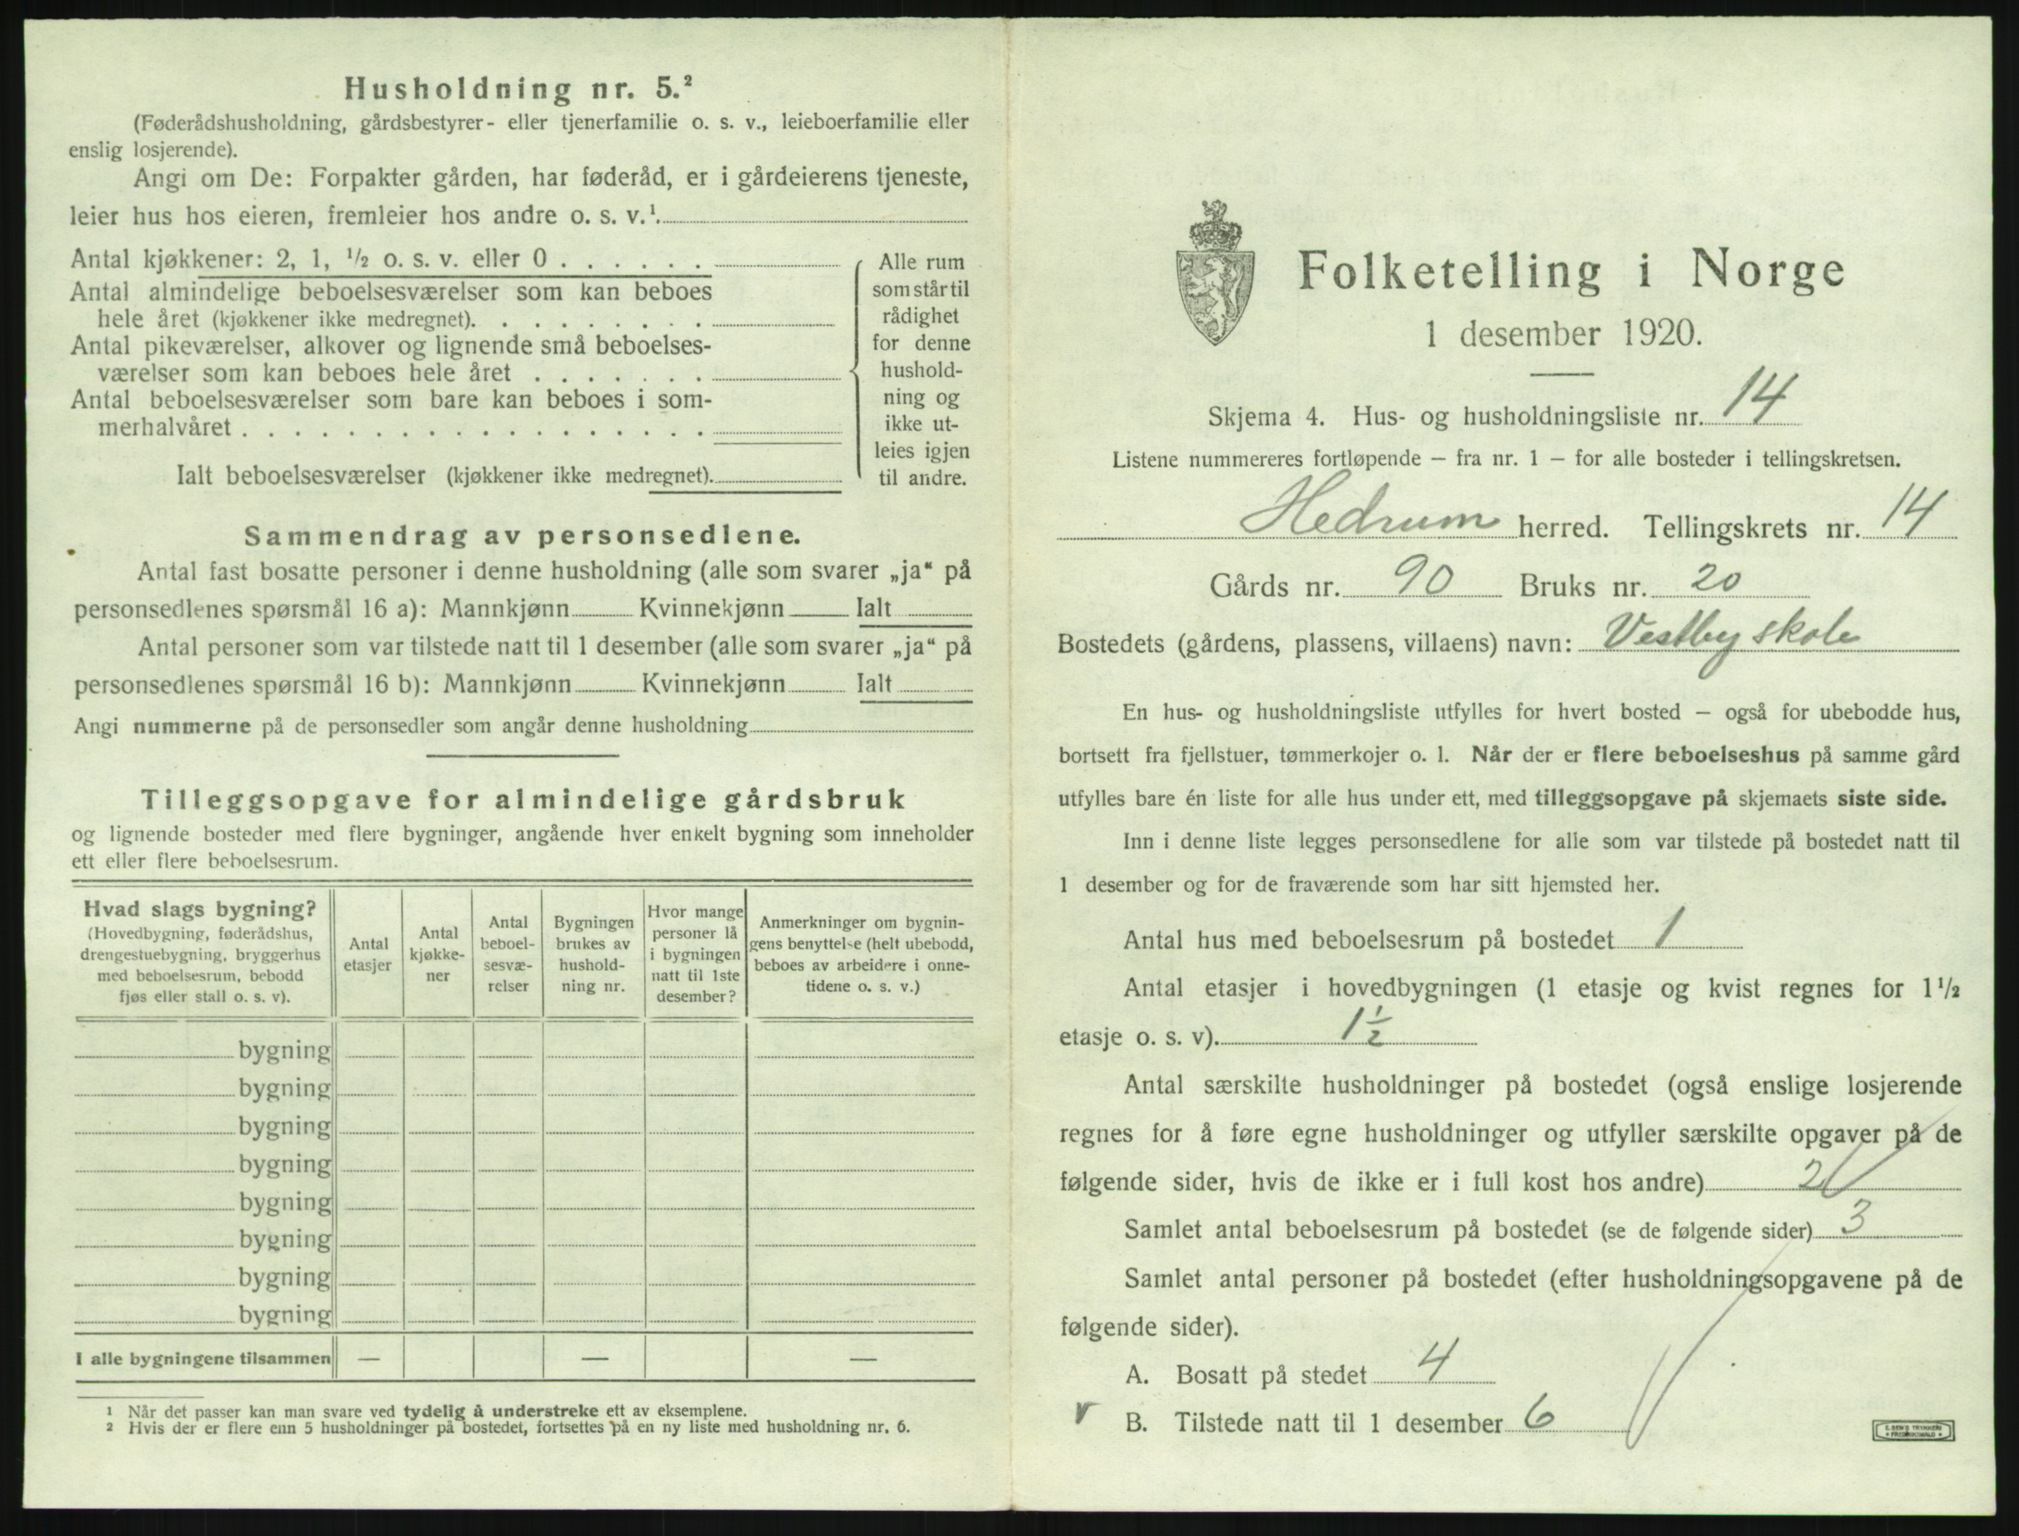 Husholdning nr. 5.²
(Føderådshusholdning, gårdsbestyrer- eller tjenerfamilie o. s. v., leieboerfamilie eller
enslig losjerende).
Angi om De: Forpakter gården, har føderåd, er i gårdeierens tjeneste,
leier hus hos eieren, fremleier hos andre o. s. v.¹
Antal kjøkkener: 2, 1, ½ o. s. v. eller 0 . . . . . .
Antal almindelige beboelsesværelser som kan beboes
hele året (kjøkkener ikke medregnet). . . . . . . . .
Antal pikeværelser, alkover og lignende små beboelses-
værelser som kan beboes hele året . . . . . . .
Antal beboelsesværelser som bare kan beboes i som-
merhalvåret . . . . . . . . . . . . . . . . . .
Ialt beboelsesværelser (kjøkkener ikke medregnet).
Alle rum
som står til
rådighet
for denne
hushold-
ning og
ikke ut-
leies igjen
til andre.
Sammendrag av personsedlene.
Antal fast bosatte personer i denne husholdning (alle som svarer „ja“ på
personsedlenes spørsmål 16 a): Mannkjønn Kvinnekjønn Ialt
Antal personer som var tilstede natt til 1 desember (alle som svarer „ja“ på
personsedlenes spørsmål 16 b): Mannkjønn Kvinnekjønn Ialt
Angi nummerne på de personsedler som angår denne husholdning
Tilleggsopgave for almindelige gårdsbruk
og lignende bosteder med flere bygninger, angående hver enkelt bygning som inneholder
ett eller flere beboelsesrum.
Hvad slags bygning?
(Hovedbygning, føderådshus,
drengestuebygning, bryggerhus
med beboelsesrum, bebodd
fjøs eller stall o. s. v).
Antal
etasjer
Antal
kjøkke-
ner
Antal
beboel-
sesvæ-
relser
Bygningen
brukes av
hushold-
ning nr.
Hvor mange
personer lå
i bygningen
natt til 1ste
desember?
Anmerkninger om bygnin-
gens benyttelse (helt ubebodd,
beboes av arbeidere i onne-
tidene o. s. v.)
bygning
bygning
bygning
bygning
bygning
bygning
bygning
bygning
I alle bygningene tilsammen — — —
¹ Når det passer kan man svare ved tydelig å understreke ett av eksemplene.
² Hvis der er flere enn 5 husholdninger på bostedet, fortsettes på en ny liste med husholdning nr. 6.
Folketelling i Norge
1 desember 1920.
Skjema 4. Hus- og husholdningsliste nr. 14
Listene nummereres fortløpende — fra nr. 1 — for alle bosteder i tellingskretsen.
Hedrum herred. Tellingskrets nr. 14
Gårds nr. 90 Bruks nr. 20
Bostedets (gårdens, plassens, villaens) navn: Vestby skole
En hus- og husholdningsliste utfylles for hvert bosted — også for ubebodde hus,
bortsett fra fjellstuer, tømmerkojer o. l. Når der er flere beboelseshus på samme gård
utfylles bare én liste for alle hus under ett, med tilleggsopgave på skjemaets siste side.
Inn i denne liste legges personsedlene for alle som var tilstede på bostedet natt til
1 desember og for de fraværende som har sitt hjemsted her.
Antal hus med beboelsesrum på bostedet 1
Antal etasjer i hovedbygningen (1 etasje og kvist regnes for 1½
etasje o. s. v). 1½
Antal særskilte husholdninger på bostedet (også enslige losjerende
regnes for å føre egne husholdninger og utfyller særskilte opgaver på de
følgende sider, hvis de ikke er i full kost hos andre) 2
Samlet antal beboelsesrum på bostedet (se de følgende sider) 3
Samlet antal personer på bostedet (efter husholdningsopgavene på de
følgende sider).
A. Bosatt på stedet 4
B. Tilstede natt til 1 desember 6